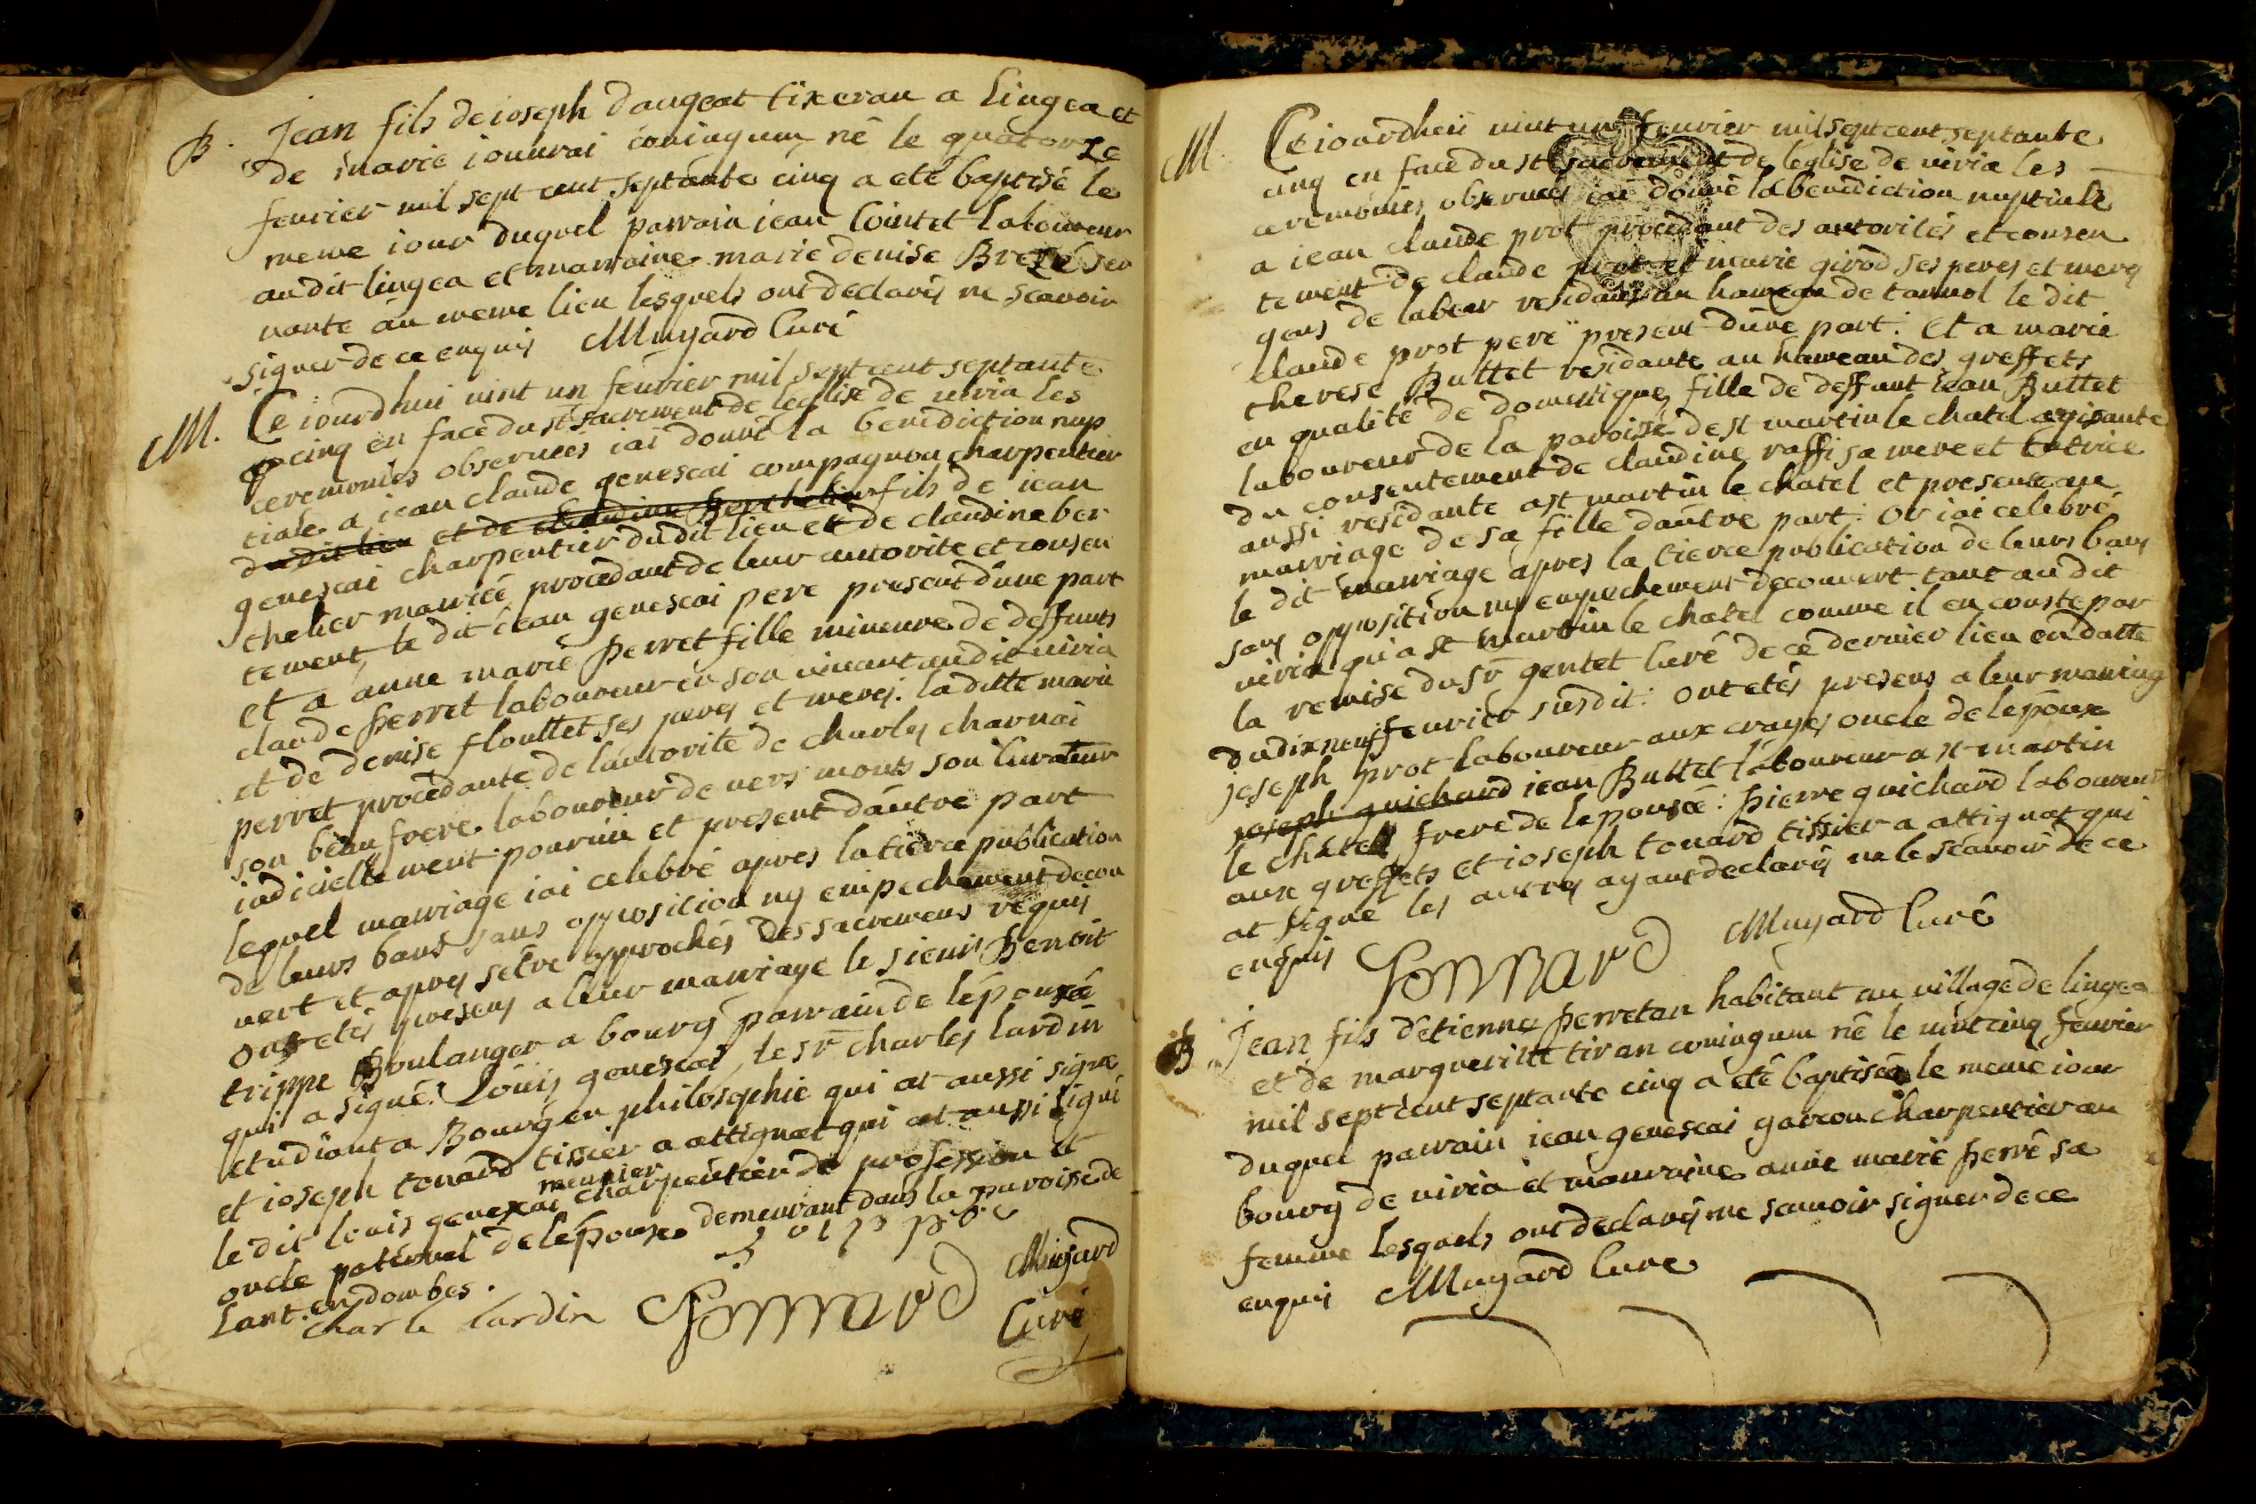 B. Jean fils de ioseph daugeat tixeran a lingea et
de marie iouvrai coniugum né le quatorze
fevrier mil sept cent septante cinq a eté baptisé le
meme iour duquel parrain iean Cointet laboureur
audit lingea et marraine marie denise Brezé ser
vante au meme lieu lesquels ont declarés ne scavoir
signer de ce enquis Muyard Curé
M. Ce iourdhui vint un fevrier mil sept cent septante
cinq en face du st sacrement de leglise de viria les
ceremonies observees iai donné la benediction nup
tiale a iean claude genescai compagnon charpentier
dudit lieu et de claudine Berthelier fils de iean
genescai charpentier dudit lieu et de claudine ber
thelier mariée procedant de leur autorite et consen
tement, le dit iean genescai pere present d'une part
et a anne marie perret fille mineure de deffunts
claude perret laboureur en son vivant audit viria
et de denise flouttet ses peres et meres. la ditte marie
perret procedante de lautorite de charles charnai
son beau frere laboureur de vers monts son Curateur
iudiciellement pourvui et present dautre part
lequel marriage iai celebré apres la tierce publication
de leurs bans sans opposition ny empechement decou
vert et apres setre approchés des sacremens requis
ont etés presens a leur marriage le sieur Benoit
trippe Boulanger a bourg parrain de lépousée
qui a signé. Louis genescai, le sr charles lardin
etudiant a Bourg en philosophie qui at aussi signé
et ioseph tonard tissier a attignat qui at aussi signé
le dit louis genescai meunier charpentier de profession et
oncle paternel de lépouse demeurant dans la paroisse de
Lant. en dombes.
charle lardin Tonnard Muyard
Curé
M. Ce iourdheu vint un fevrier mil sept cent septante
cinq en face du st sacrement de leglise de viria les
ceremonies observees iai donné la benediction nuptiale
a iean claude prot procedant des autorités et consen
tement de claude prot et marie girod ses peres et meres
gens de labeur residans au hameau de tannol le dit
claude prot pere present d'une part. Et a marie
therese Buttet residante au hameau des greffets
en qualité de domestique, fille de deffunt iean Buttet
laboureur de la paroisse de st martin le chatel agissante
du consentement de claudine raffi sa mere et tutrice
aussi residante a st martin le chatel et presente au
marriage de sa fille dautre part. Or iai celebré
le dit marriage apres la tierce publication de leurs bans
sans opposition ny empechement decouvert tant au dit
viria qu'a st martin le chatel comme il en conste par
la remise du sr gentet Curé de ce dernier lieu en datte
du dix neuf fevrier susdit. ont etés presens a leur marriag
joseph prot laboureur aux crayes oncle de lépoux
joseph guichard iean Buttet laboureur a st martin
le chatel frere de lepousée. pierre guichard laboureur
aux greffets et ioseph tonard tissier a attignat qui
at signé les autres ayant declarés ne le scavoir de ce
enquis Tonnard Muyard Curé
B. Jean fils détienne perretan habitant au village de lingea
et de margueritte tiran coniugum né le vint cinq fevrier
mil sept cent septante cinq a eté baptisé le meme iour
duquel parrain iean genescai garcon charpentier au
bourg de viria et marraine anne marie perré sa
femme lesquels ont declarés ne scavoir signer de ce
enquis Muyard Curé